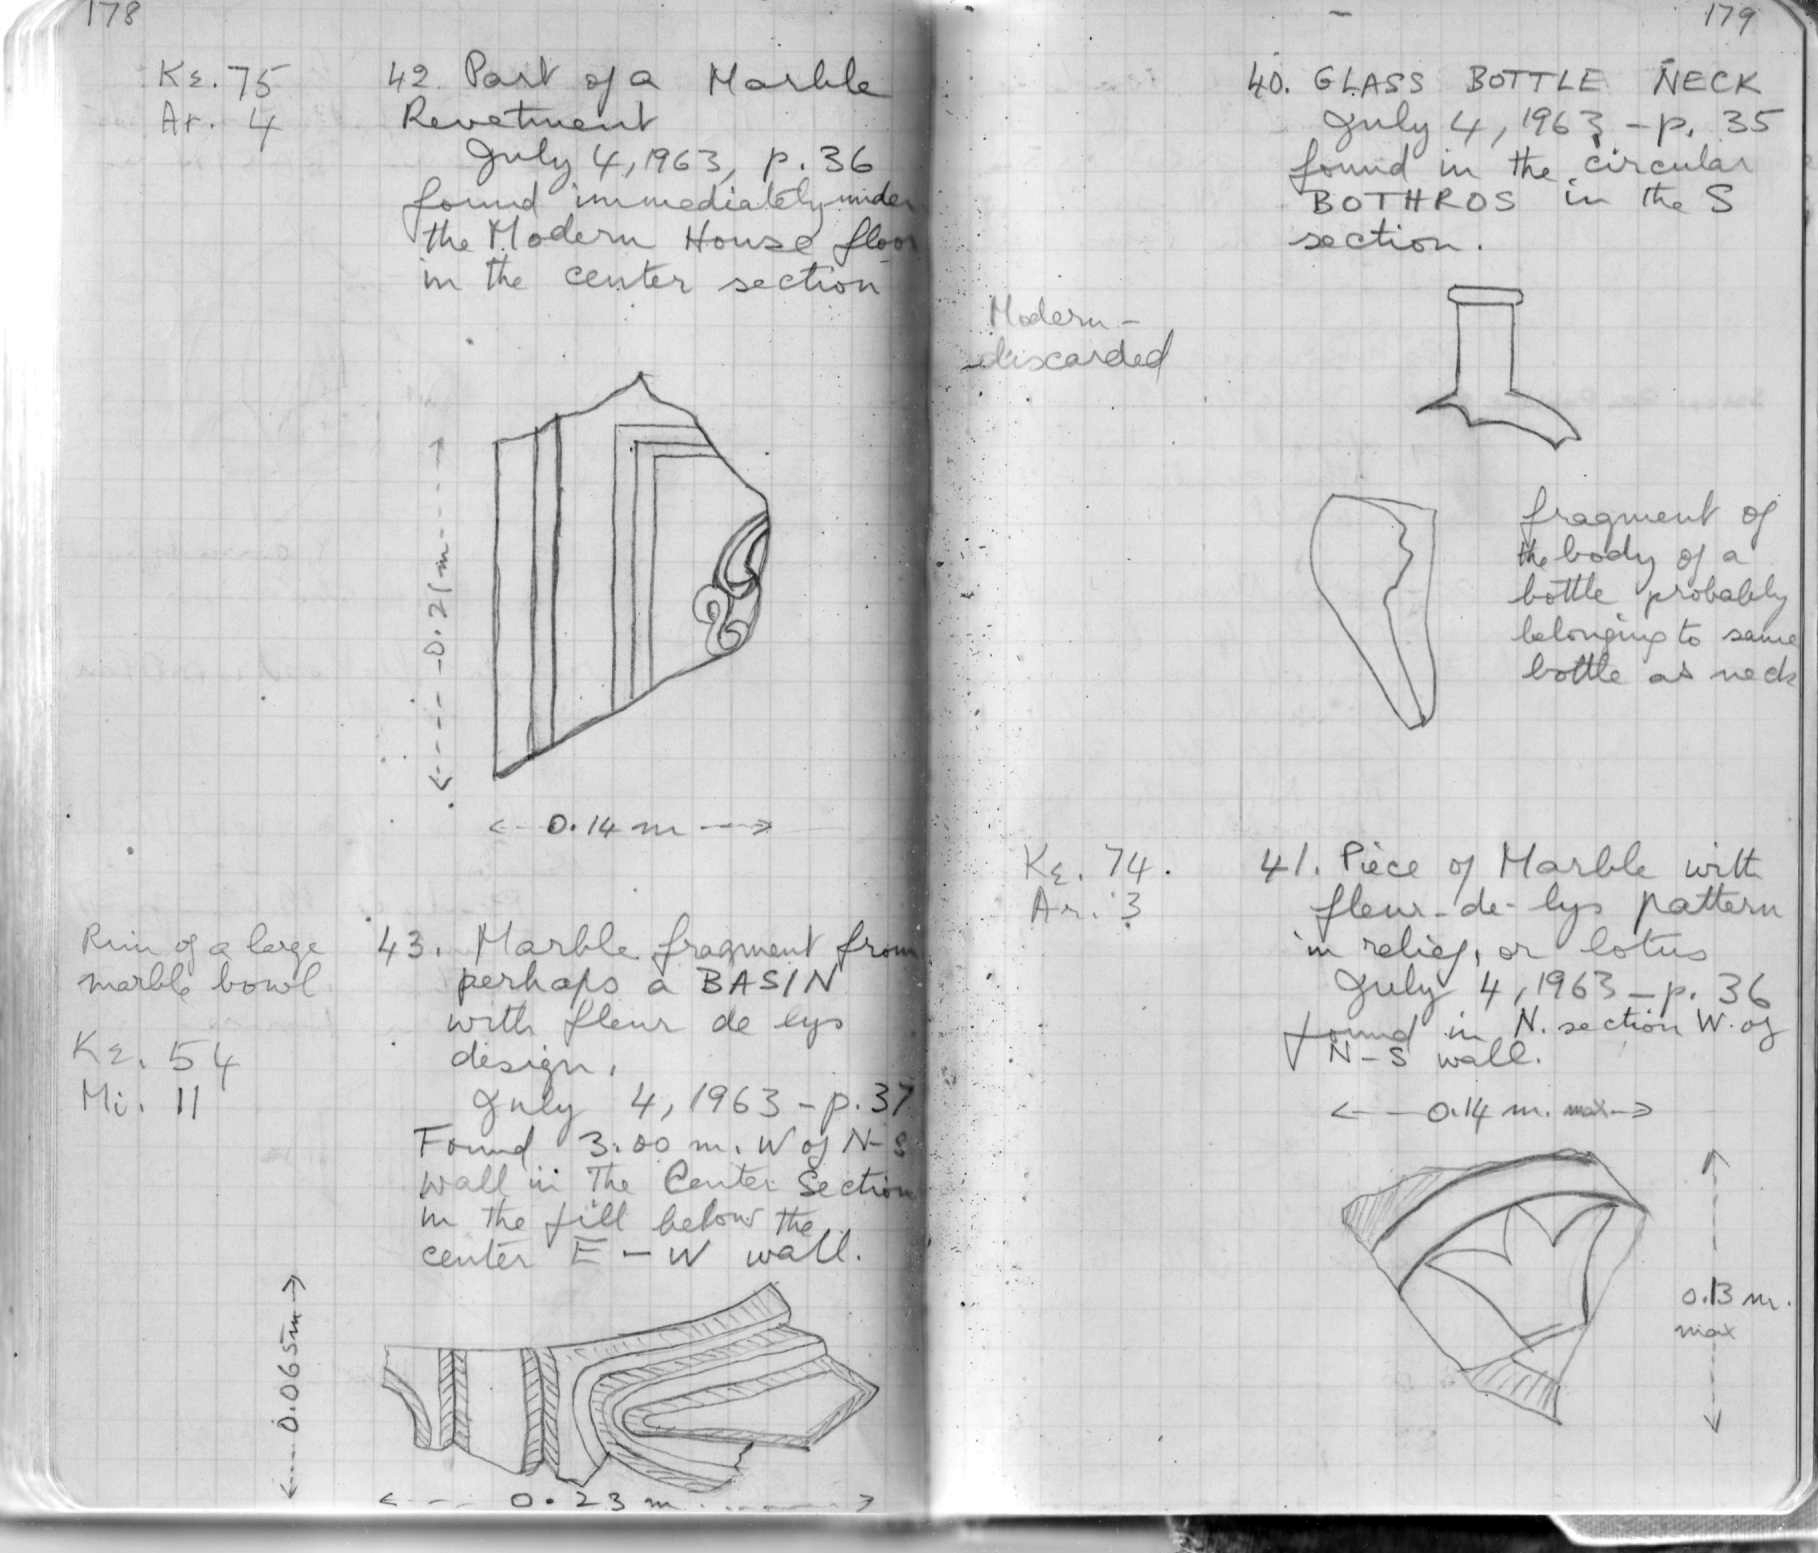 178
Kε. 75
Ar. 4
42. Part of a Marble
Revetment
July 4, 1963, p. 36
found immediately under
the Modern House floor
in the center section
0.21 m
0.14 m
Rim of a large
marble bowl
Kε. 54
Mi. 11
43. Marble fragment from
perhaps a BASIN
with fleur de lys
design.
July 4, 1963 - p. 37
Found 3.00 m. W of N-S
wall in The Center Section
in the fill below the
center E - W wall.
0.065m
0.23 m
179
40. GLASS BOTTLE NECK
July 4, 1963 - p. 35
found in the circular
BOTHROS in the S
section.
Modern -
discarded
fragment of
the body of a
bottle probably
belonging to same
bottle as neck
Kε. 74.
Ar. 3
41. Piece of Marble with
fleur-de-lys pattern
in relief, or lotus
July 4, 1963 - p. 36
found in N. section W. of
N-S wall.
0.14 m. max
0.13 m.
max